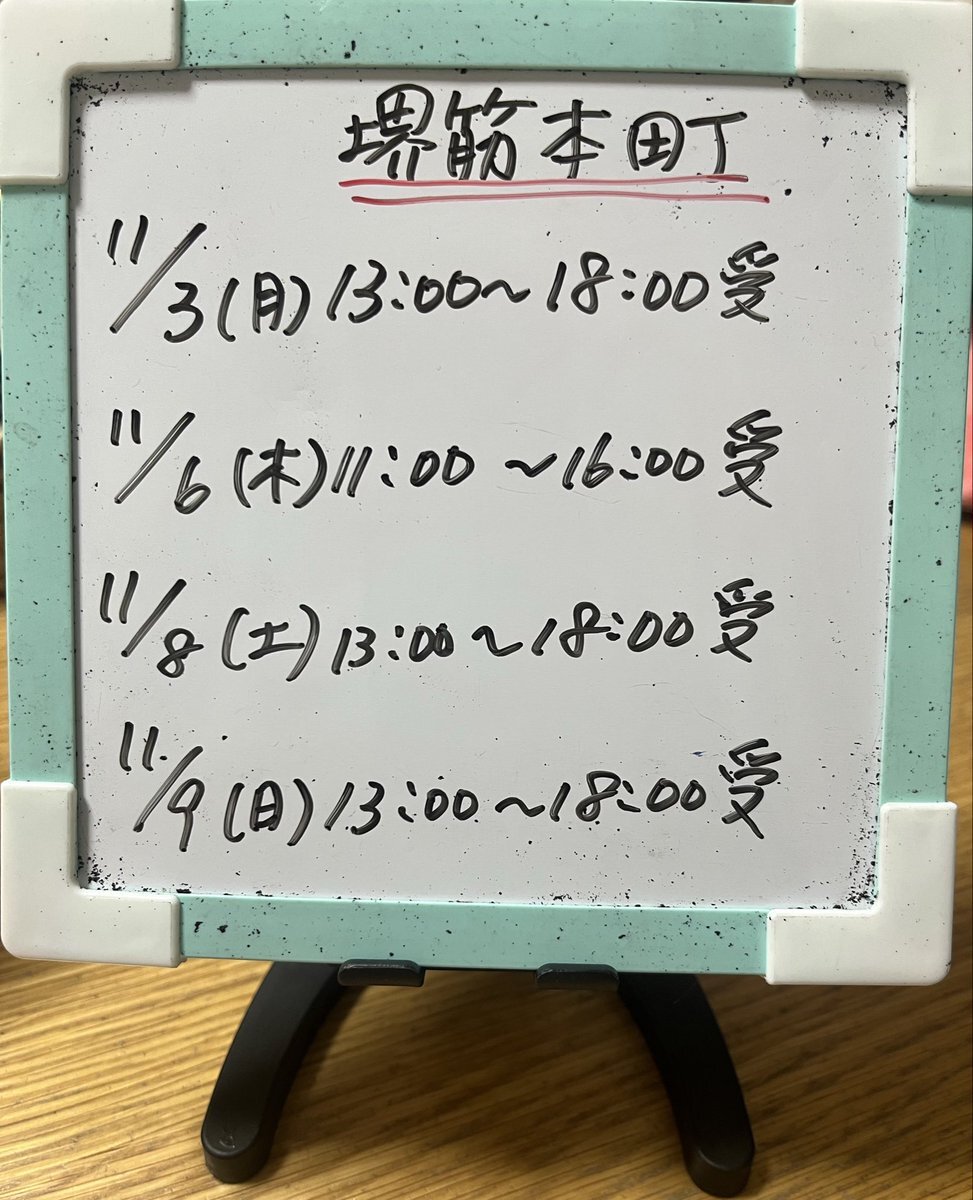 堺筋本町
11/3(月)13:00〜18:00受
11/6(木)11:00〜16:00受
11/8(土)13:00〜18:00受
11/9(日)13:00〜18:00受